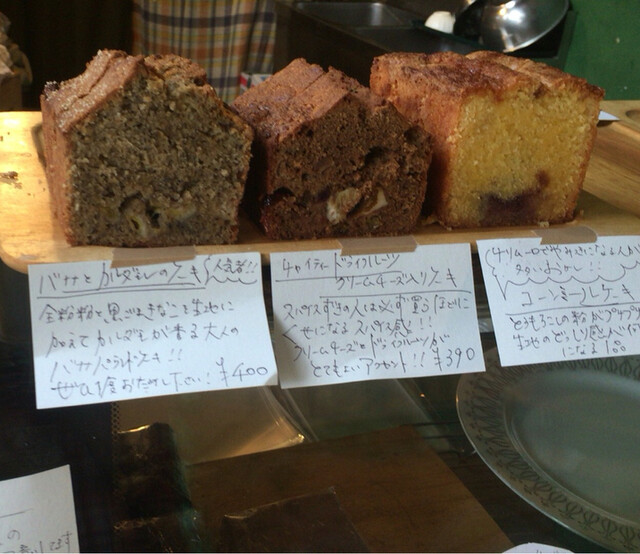 バナナとカルダモンのケーキ 人気者!!
全粒粉と黒ごまきなこを生地に
加えてカルダモンが香る大人の
バナナパウンドケーキ!!
ぜひ1度おためし下さい! ¥400
チャイティー ドライフルーツ
クリームチーズ入りケーキ
スパイスずきの人は必ず買うほどに
くせになるスパイス感!!
クリームチーズとドライフルーツが
とてもよいアクセント!! ¥390
コーンミールケーキ
とうもろこしの粒がプチプチ
生地のどっしり感と
になる1品
の
です